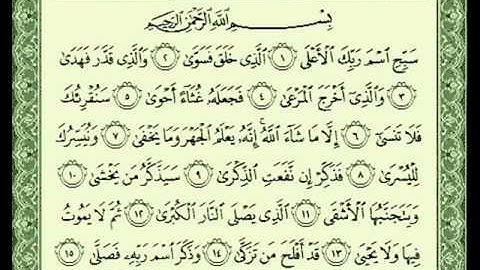 بِسْمِ اللَّهِ الرَّحْمَٰنِ الرَّحِيمِ
سَبِّحِ اسْمَ رَبِّكَ الْأَعْلَى ١ الَّذِي خَلَقَ فَسَوَّىٰ ٢ وَالَّذِي قَدَّرَ فَهَدَىٰ
٣ وَالَّذِي أَخْرَجَ الْمَرْعَىٰ ٤ فَجَعَلَهُ غُثَاءً أَحْوَىٰ ٥ سَنُقْرِئُكَ
فَلَا تَنسَىٰ ٦ إِلَّا مَا شَاءَ اللَّهُ إِنَّهُ يَعْلَمُ الْجَهْرَ وَمَا يَخْفَىٰ ٧ وَنُيَسِّرُكَ
لِلْيُسْرَىٰ ٨ فَذَكِّرْ إِن نَّفَعَتِ الذِّكْرَىٰ ٩ سَيَذَّكَّرُ مَن يَخْشَىٰ ١٠
وَيَتَجَنَّبُهَا الْأَشْقَى ١١ الَّذِي يَصْلَى النَّارَ الْكُبْرَىٰ ١٢ ثُمَّ لَا يَمُوتُ
فِيهَا وَلَا يَحْيَىٰ ١٣ قَدْ أَفْلَحَ مَن تَزَكَّىٰ ١٤ وَذَكَرَ اسْمَ رَبِّهِ فَصَلَّىٰ ١٥